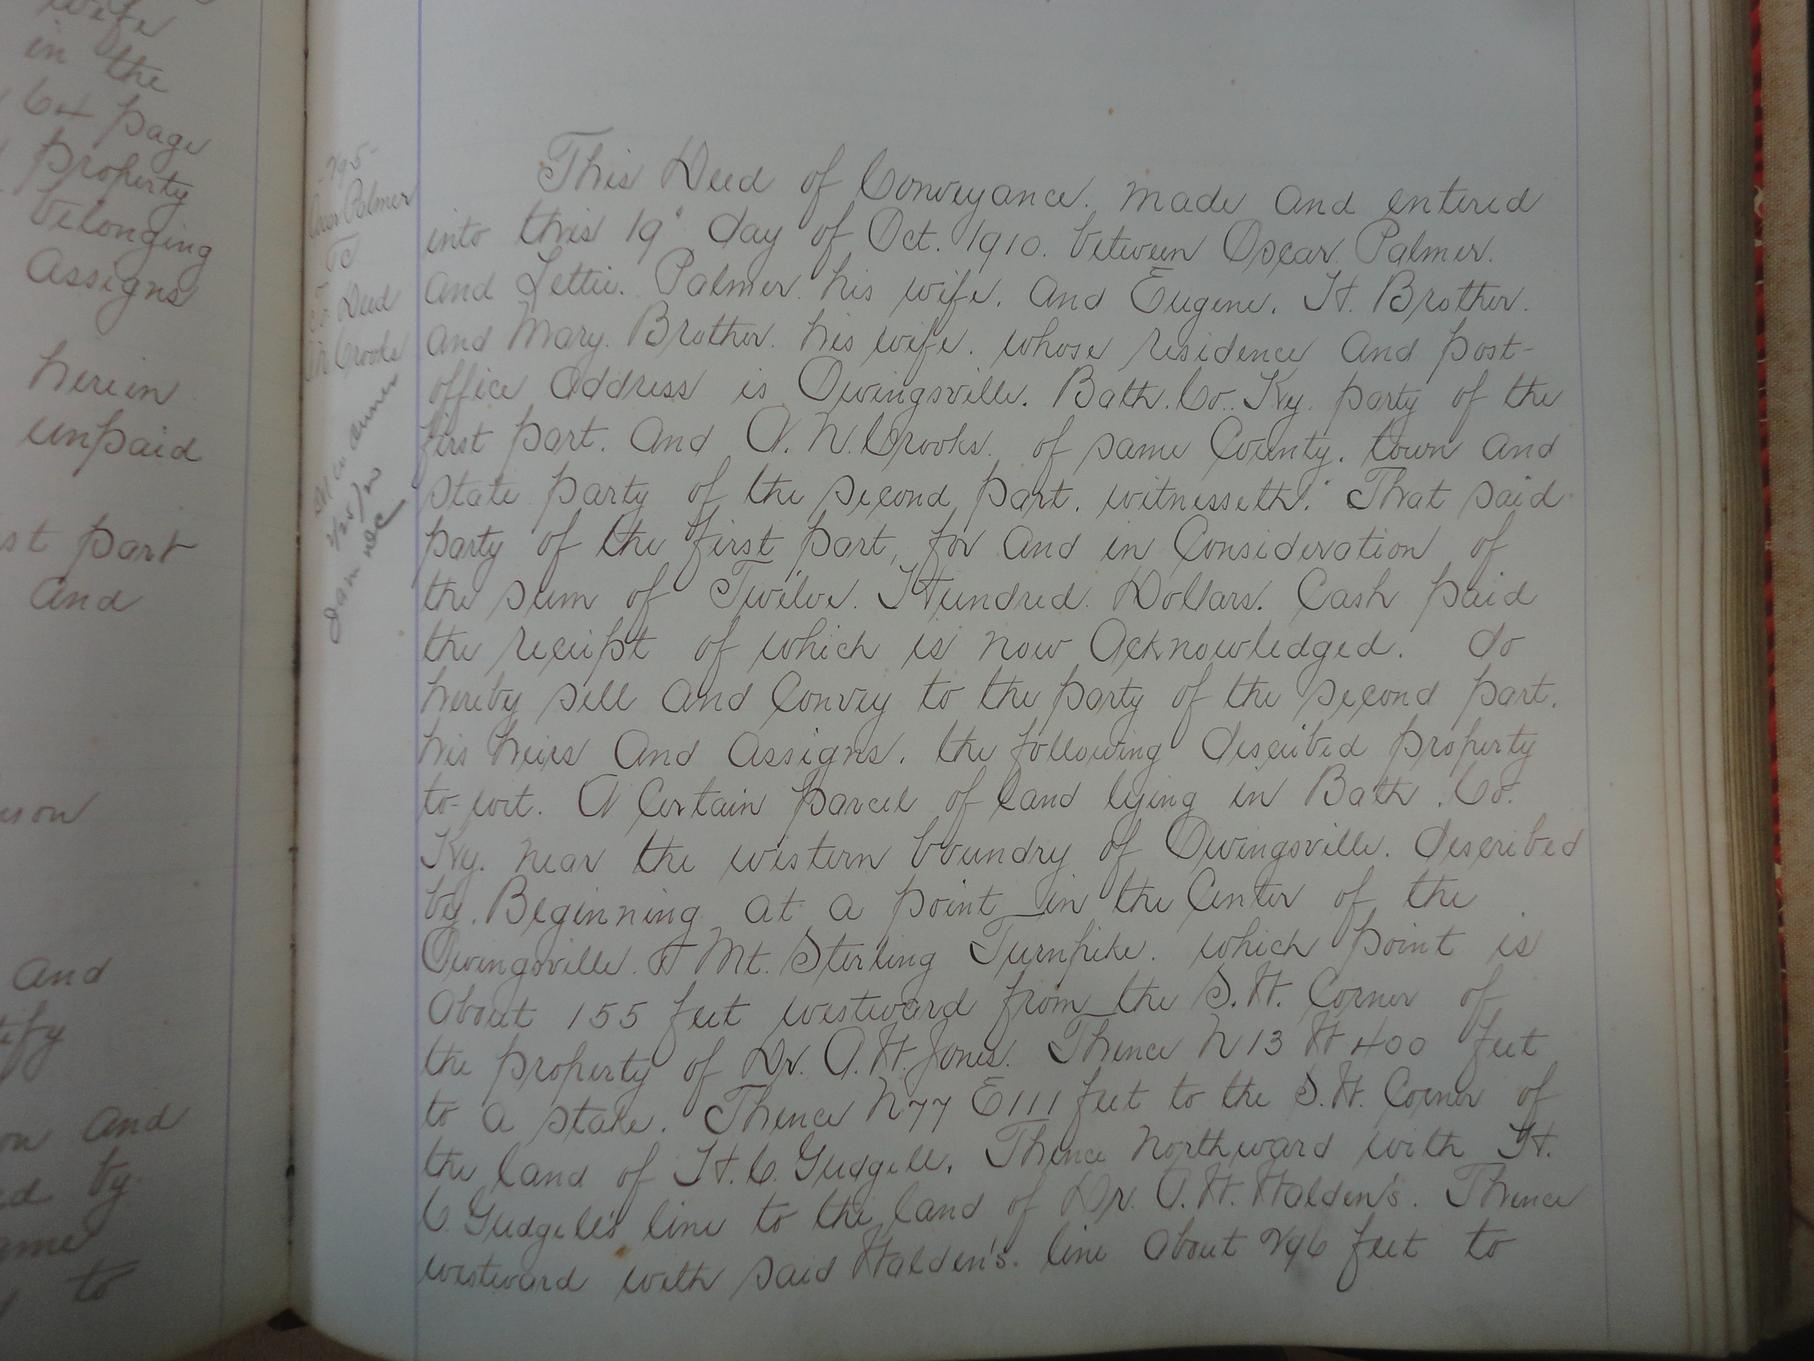 wife
in the
64 page
property
belonging
Assigns
herein
unpaid
st part
And
and
on and
by
to
295-
Oscar Palmer
To
Deed
Crooks
This Deed of Conveyance. made and entered
into this 19" day of Oct. 1910. between Oscar. Palmer.
and Lettie. Palmer his wife. and Eugene. H. Brother.
and Mary. Brother. his wife. whose residence and post-
office address is Owingsville. Bath. Co.. Ky. party of the
first part. and A. N. Crooks. of same County. town and
state party of the second part. witnesseth: That said
party of the first part, for and in Consideration of
the sum of Twelve. Hundred. Dollars. Cash paid
the receipt of which is now acknowledged. do
hereby sell and Convey to the party of the second part.
his heirs and assigns. the following described property
to-wit. A Certain parcel of land lying in Bath. Co.
Ky. near the western boundry of Owingsville. described
by. Beginning at a point in the Center of the
Owingsville. & Mt. Sterling Turnpike. which point is
about 155 feet westward from the S.W. Corner of
the property of Dr. A.W. Jones. Thence N 13 W 400 feet
to a stake. Thence N 77 E 111 feet to the S.W. Corner of
the land of H. C. Gudgell. Thence Northward with H.
C. Gudgell's line to the land of Dr. A. W. Walden's. Thence
westward with said Walden's. line about 296 feet to